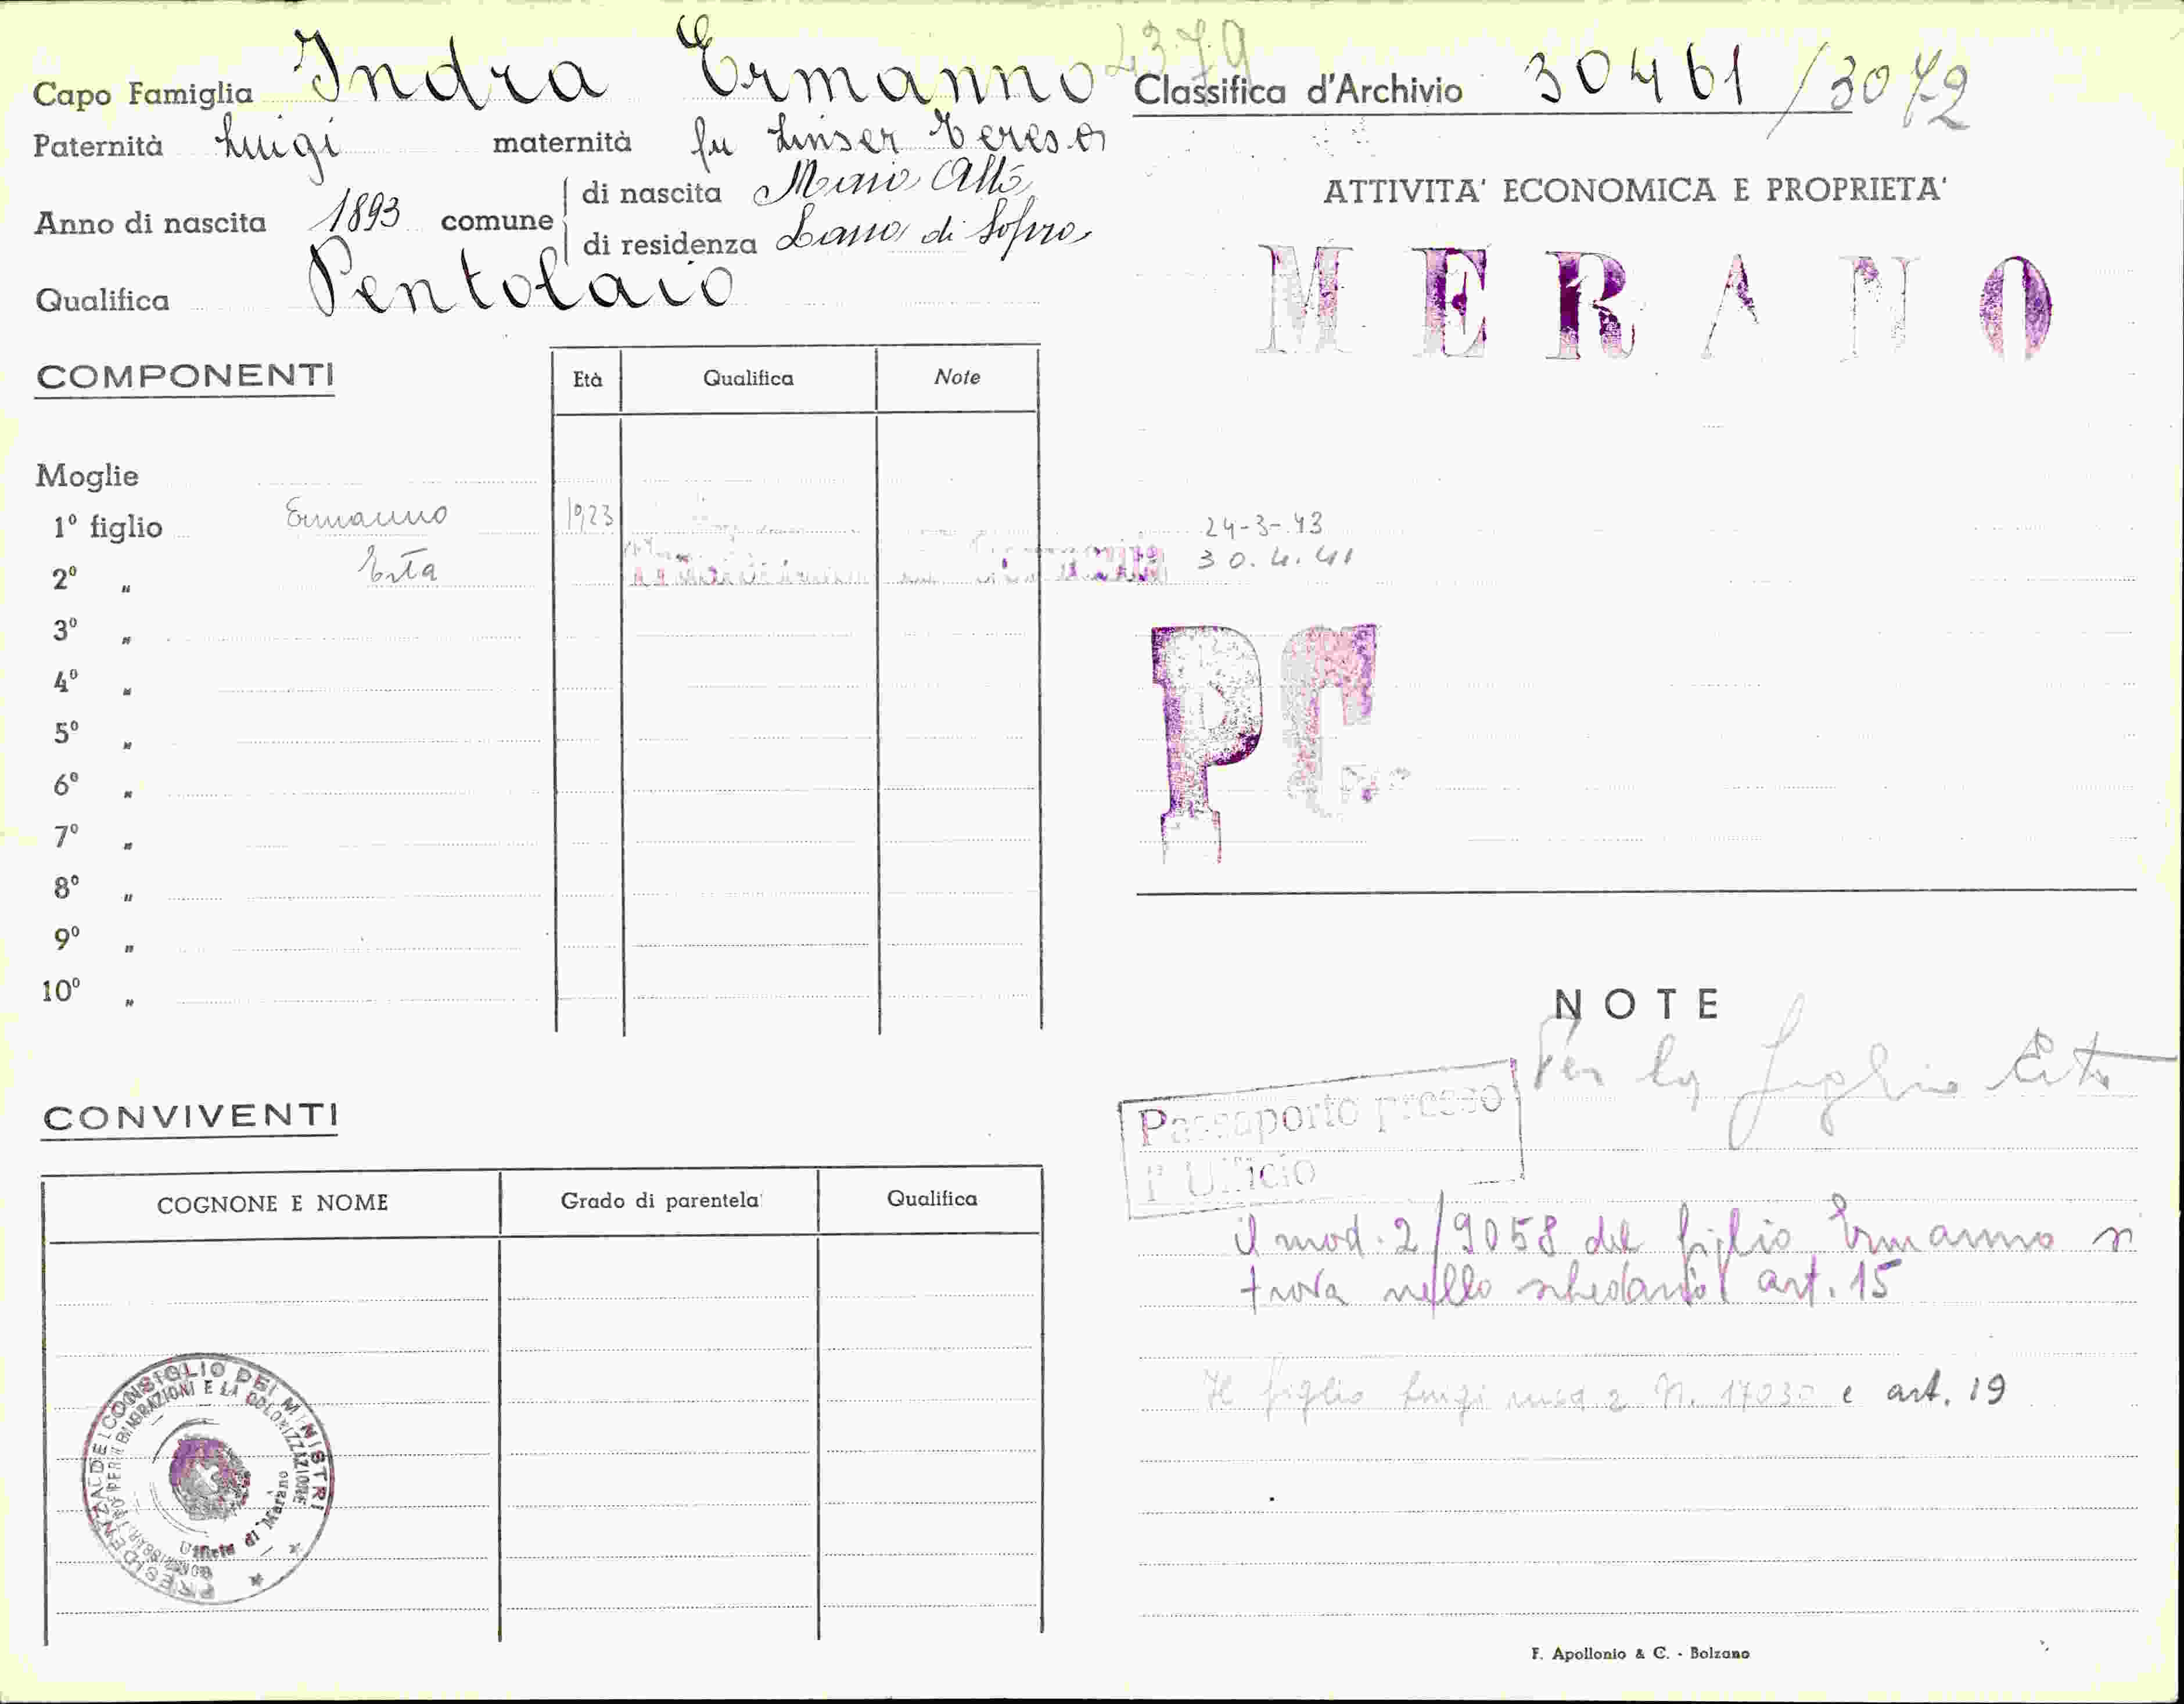 Capo Famiglia Indra Ermanno
2379
Classifica d'Archivio 30461/3072
Paternità Luigi maternità fu Linser Teresa
Anno di nascita 1893 comune
di nascita Maia Alta
di residenza Lana di Sopra
Qualifica Pentolaio
ATTIVITA' ECONOMICA E PROPRIETA'
MERANO
COMPONENTI
Età Qualifica Note
Moglie
1º figlio Ermanno 1923
24-3-43
2º " Erta
30.4.41
3º "
4º "
5º "
6º "
7º "
8º "
9º "
10º "
PC
NOTE
Per la figlia Erta
Passaporto presso
l'Ufficio
il mod. 2/9058 del figlio Ermanno si
trova nello schedario art. 15
Il figlio Luigi mod 2 N. 17030 e art. 19
CONVIVENTI
COGNONE E NOME Grado di parentela Qualifica
PRESIDENZA DEL CONSIGLIO DEI MINISTRI
E LA COLONIZZAZIONE
Ufficio di Merano
F. Apollonio & C. - Bolzano